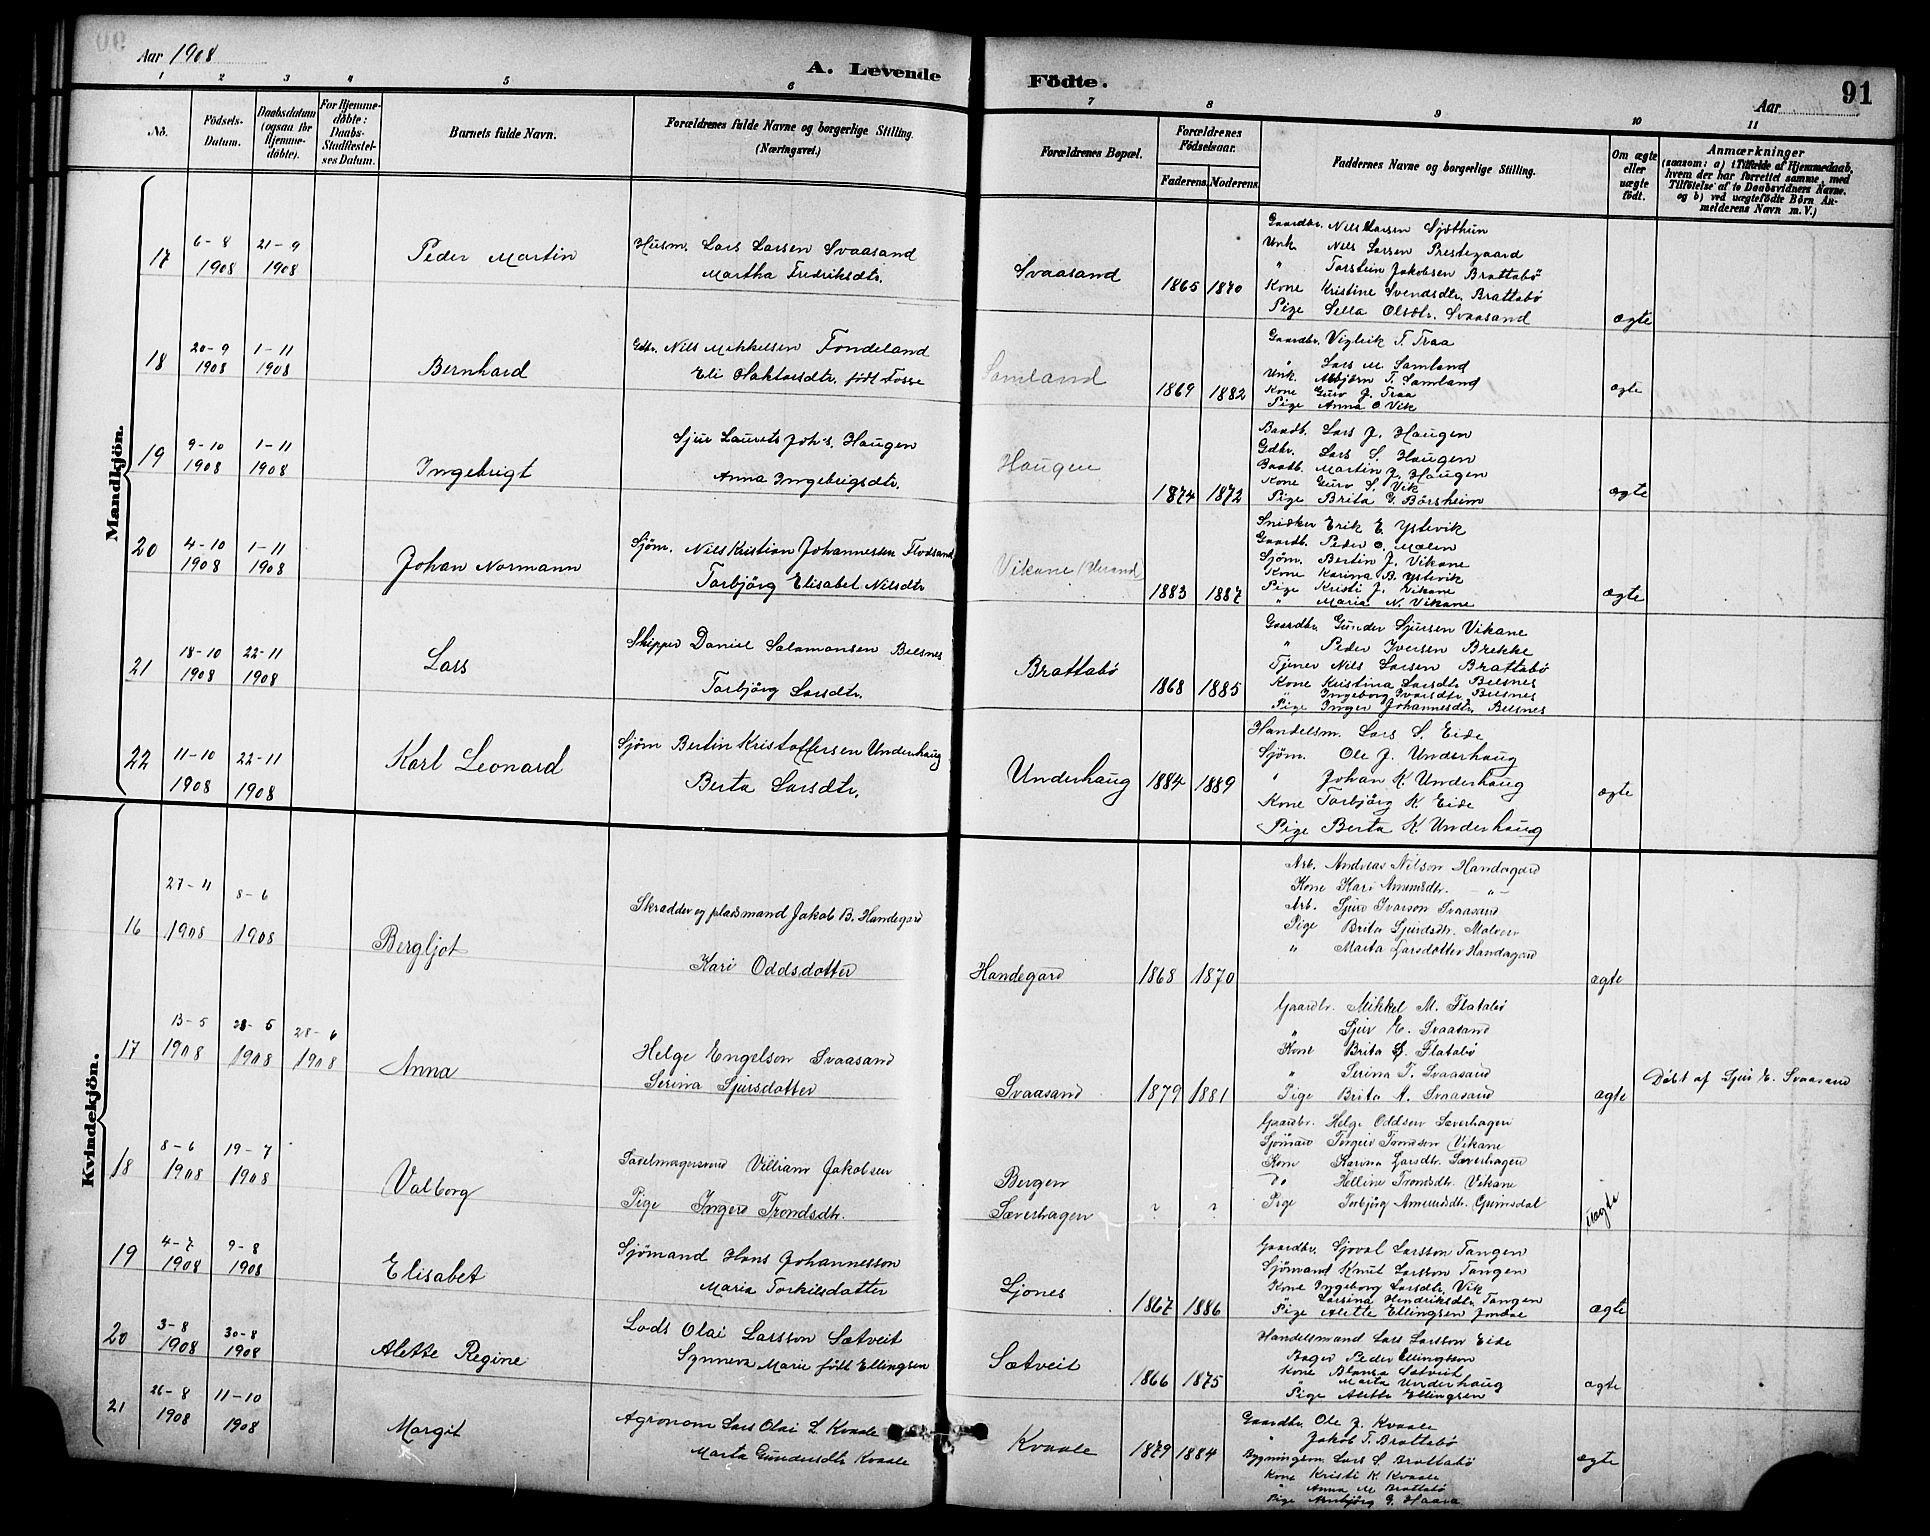 Aar 1908
A. Levende Födte.
Aar
91
1 2 3 4 5 6 7 8 9 10 11
No.
Födsels-Datum.
Daabsdatum (ogsaa for Hjemmedöbte).
For Hjemmedöbte: Daabs-Stadfæstelses Datum.
Barnets fulde Navn.
Forældrenes fulde Navne og borgerlige Stilling. (Næringsvei.)
Forældrenes Bopæl.
Forældrenes Födselsaar.
Faderens. Moderens.
Faddernes Navne og borgerlige Stilling.
Om ægte eller uægte födt.
Anmærkninger
(saasom: a) i Tilfælde af Hjemmedaab, hvem der har forrettet samme, med Tilföielse af to Daabsvidners Navne. og b) ved uægtefödte Börn Anmelderens Navn m. V.)
Mandkjön.
17 6-8 1908 21-9 1908 Peder Martin
Husm. Lars Larsen Svaasand
Martha Fredriksdtr.
Svaasand 1865 1870
Gaardbr. Nils Larsen Sjöthun
Unk. Nils Larsen Prestegaard
" Torstein Jakobsen Brattabö
Kone Kristine Svendsdtr. Brattabö
Pige Sella Olsdtr. Svaasand
ægte
18 20-9 1908 1-11 1908 Bernhard
Gdbr. Nils Mikkelsen Tondeland
Eli Haktorsdtr. födt Fosse
Samland 1869 1882
Gaardbr. Vigleik T. Traa
" Lars M. Samland
Unk. Asbjörn T. Samland
Kone Guro J. Traa
Pige Anna O. Vik
ægte
19 9-10 1908 1-11 1908 Ingebrigt
Sjur Laurits Joh's. Haugen
Anna Ingebrigsdtr.
Haugen 1874 1872
Baadb. Lars J. Haugen
Gdbr. Lars S. Haugen
Baadb. Martin J. Haugen
Kone Guro S. Vik
Pige Brita G. Börsheim
ægte
20 4-10 1908 1-11 1908 Johan Normann
Sjöm. Nils Kristian Johannessen Flodsand
Torbjörg Elisabet Nilsdtr
Vikane 1883 1887
Snidker Erik E. Ystevik
Gaardb. Peder O. Malen
Sjöm. Bertin J. Vikane
Kone Karina B. Ystevik
Pige Kristi J. Vikane
" Maria N. Vikane
ægte
21 18-10 1908 22-11 1908 Lars
Skipper Daniel Salamonsen Belsnes
Torbjörg Larsdtr.
Brattabö 1868 1885
Gaardbr. Gunder Sjursen Vikane
" Peder Iversen Brekke
Tjener Nils Larsen Brattabö
Kone Kristina Larsdtr Belsnes
" Ingeborg Ivarsdtr. Belsnes
Pige Inger Johannesdtr. Belsnes
22 11-10 1908 22-11 1908 Karl Leonard
Sjöm Bertin Kristoffersen Underhaug
Berta Larsdtr.
Underhaug 1884 1889
Handelsm. Lars S. Eide
Sjöm. Ole J. Underhaug
" Johan K. Underhaug
Kone Torbjörg K. Eide
Pige Berta K. Underhaug
ægte
Kvindekjön.
16 27-4 1908 8-6 1908 Bergljot
Skrædder og pladsmand Jakob B. Handegard
Kari Oddsdotter
Handegard 1868 1870
Arb. Andreas Nilson Handegard
Kone Kari Amundsdtr. -"-
Arb. Sjur Ivarson Svaasand
Pige Brita Sjurdsdtr.
" Marta Larsdotter Handegard
ægte
17 13-5 1908 28-5 1908 28-6 1908 Anna
Helge Engelson Svaasand
Serina Sjursdotter
Svaasand 1879 1881
Gaardbr. Mikkel M. Flatabö
" Sjur E. Svaasand
Kone Brita S. Flatabö
" Serina T. Svaasand
Pige Brita A. Svaasand
ægte
Döbt af Sjur E. Svaasand
18 8-6 1908 19-7 1908 Valborg
Sadelmagersvend Villiam Jakobsen
Pige Inger Trondsdtr.
Bergen
Sæverhagen ? ?
Gaardbr. Helge Oddson Sæverhagen
Sjömand Torgeir Trondson Vikane
Kone Karina Larsdtr. Sæverhagen
Do Helline Trondsdtr. Vikane
Pige Torbjörg Amundsdtr. Grimsdal
uægte
19 4-7 1908 9-8 1908 Elisabet
Sjömand Hans Johannesson
Maria Torkilsdatter
Ljones 1867 1886
Gaardbr. Sjoval Larsson Tangen
Sjömand Knut Larsson Tangen
Kone Ingeborg Larsdtr. Vik
" Larsina Hendriksdtr. Tangen
Pige Alette Ellingsen Jondal
ægte
20 3-8 1908 30-8 1908 Alette Regine
Lods Olai Larsson Sætveit
Synneva Marie födt Ellingsen
Sætveit 1866 1875
Handelsmand Lars Larsson Eide
Bager Peder Ellingson
Kone Blansa Sætveit
" Marta Underhaug
Pige Alette Ellingsen
ægte
21 26-8 1908 11-10 1908 Margit
Agronom Lars Olai L. Kvaale
Marta Gundersdtr. Kvaale
Kvaale 1879 1884
Gaardbr. Ole J. Kvaale
" Jakob T. Brattabö
Bygningsm. Lars S. Brattabö
Kone Kristi K. Kvaale
" Anna M. Brattabö
Pige Asbjörg G. Haara
ægte